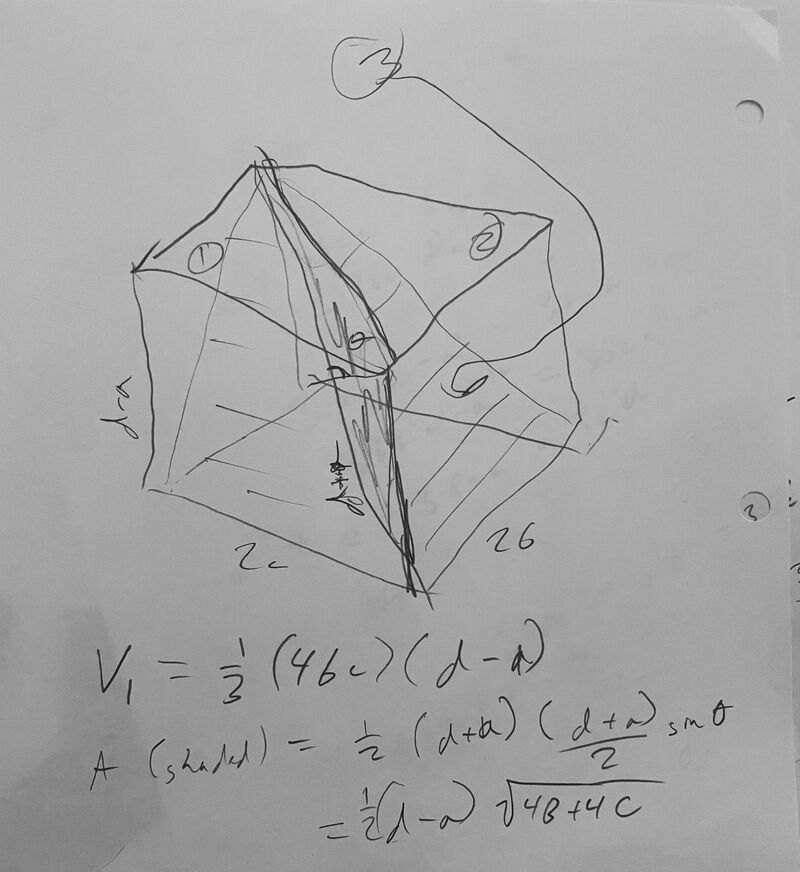 3
1
2
d-a
θ
2c
2b
3
V₁ = 1/3 (4bc)(d-a)
A (shaded) = 1/2 (d+a) (d+a)/2 sin θ
= 1/2 (d-a) √(4B+4C)